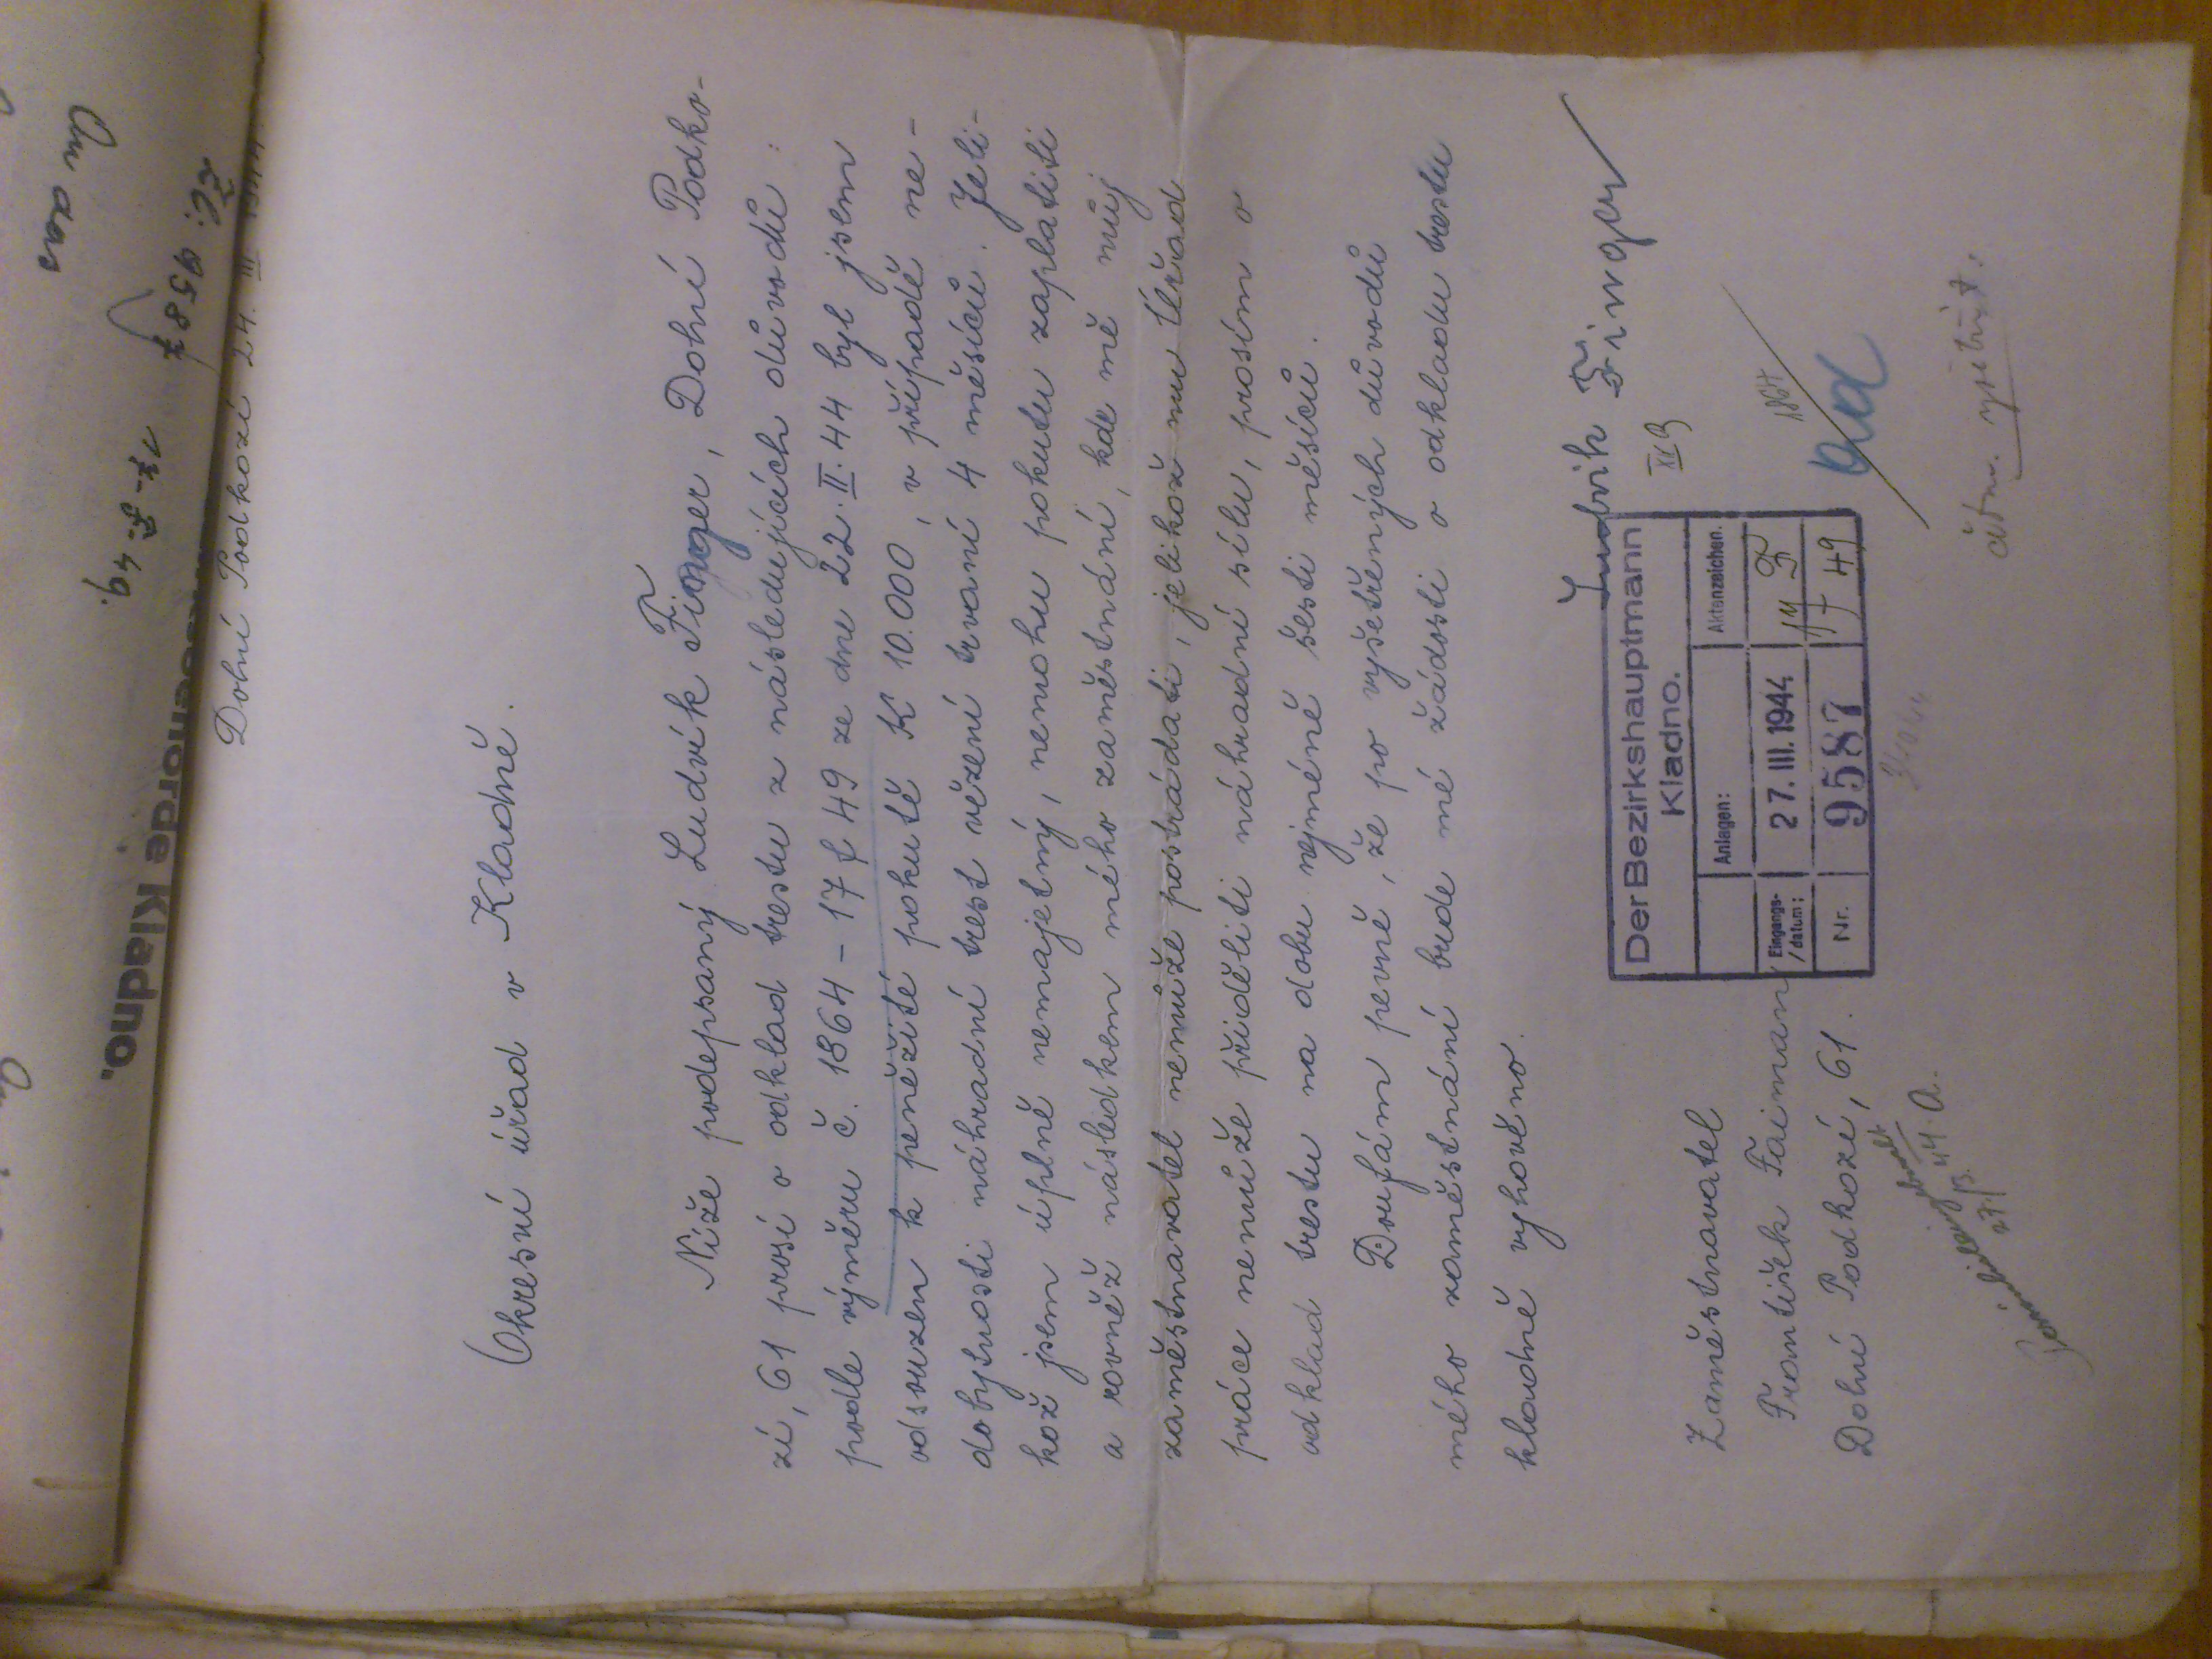 An das
Zl: 9587
17-F-49.
Kladno.
Dolní Podkozí 24. III 1944.
Okresní úřad v Kladně.
Níže podepsaný Ludvík Finger, Dolní Podko-
zí, 61 prosí o odklad trestu z následujících důvodů :
podle výměru č. 1864 - 17 f 49 ze dne 22. II. 44 byl jsem
odsouzen k peněžité pokutě K 10.000, v případě ne-
dobytnosti náhradní trest vězení trvaní 4 měsíců. Jeli-
kož jsem úplně nemajetný, nemohu pokutu zaplatiti
a rovněž následkem mého zaměstnání, kde mě můj
zaměstnavatel nemůže postrádati, jelikož mu Úřad
práce nemůže přiděliti náhradní sílu, prosím o
odklad trestu na dobu nejméně šesti měsíců.
Doufám pevně, že po vyšetřených důvodů
mého zaměstnání bude mé žádosti o odkladu trestu
kladně vyhověno.
Ludvik Finger
Zaměstnavatel
František Faiman
Dolní Podkozí, 61.
Der Bezirkshauptmann
Kladno.
Anlagen: Aktenzeichen.
Eingangs-
/datum: 27. III. 1944 17 F
Nr. 9587 49
1864
ad
27./3. 44. A.